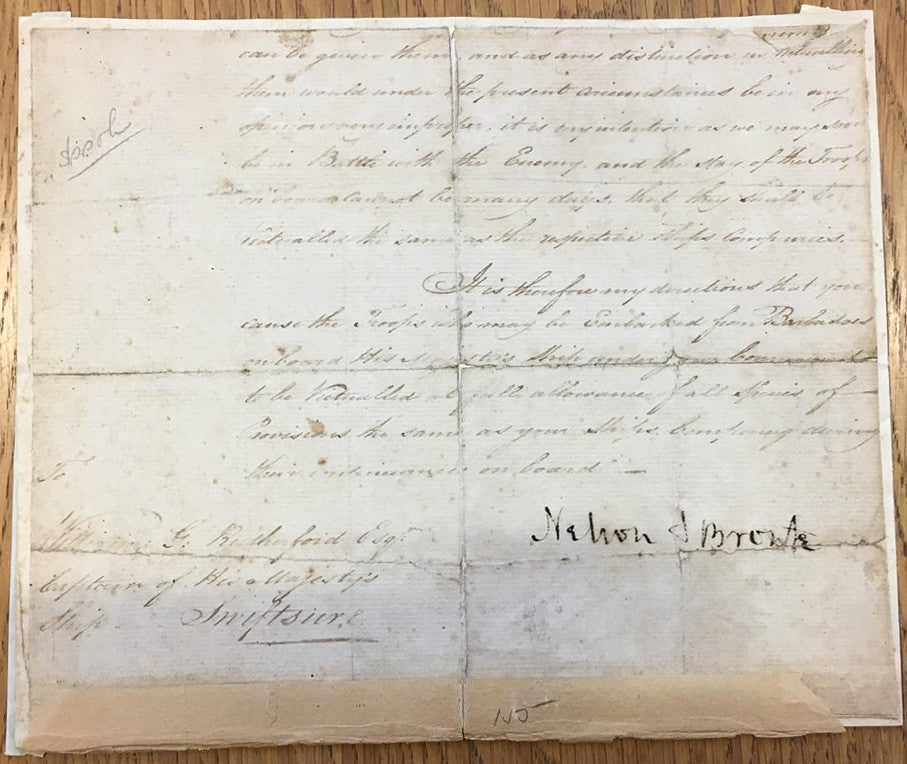 can be given them, and as any distinction in victualling
them would under the present circumstances be in my
opinion very improper, it is my intention as we may soon
be in Battle with the Enemy, and the stay of the Troops
on board cannot be many days, that they shall be
Victualled the same as the respective Ships Companies.
It is therefore my directions that you
cause the Troops who may be Embarked from Barbadoes
on board His Majesty's Ship under your Command
to be Victualled at full allowance of all Species of
Provisions the same as your Ships Company during
their continuance on board
Nelson & Bronte
To
William G. Rutherford Esqr
Captain of His Majesty's
Ship Swiftsure
115